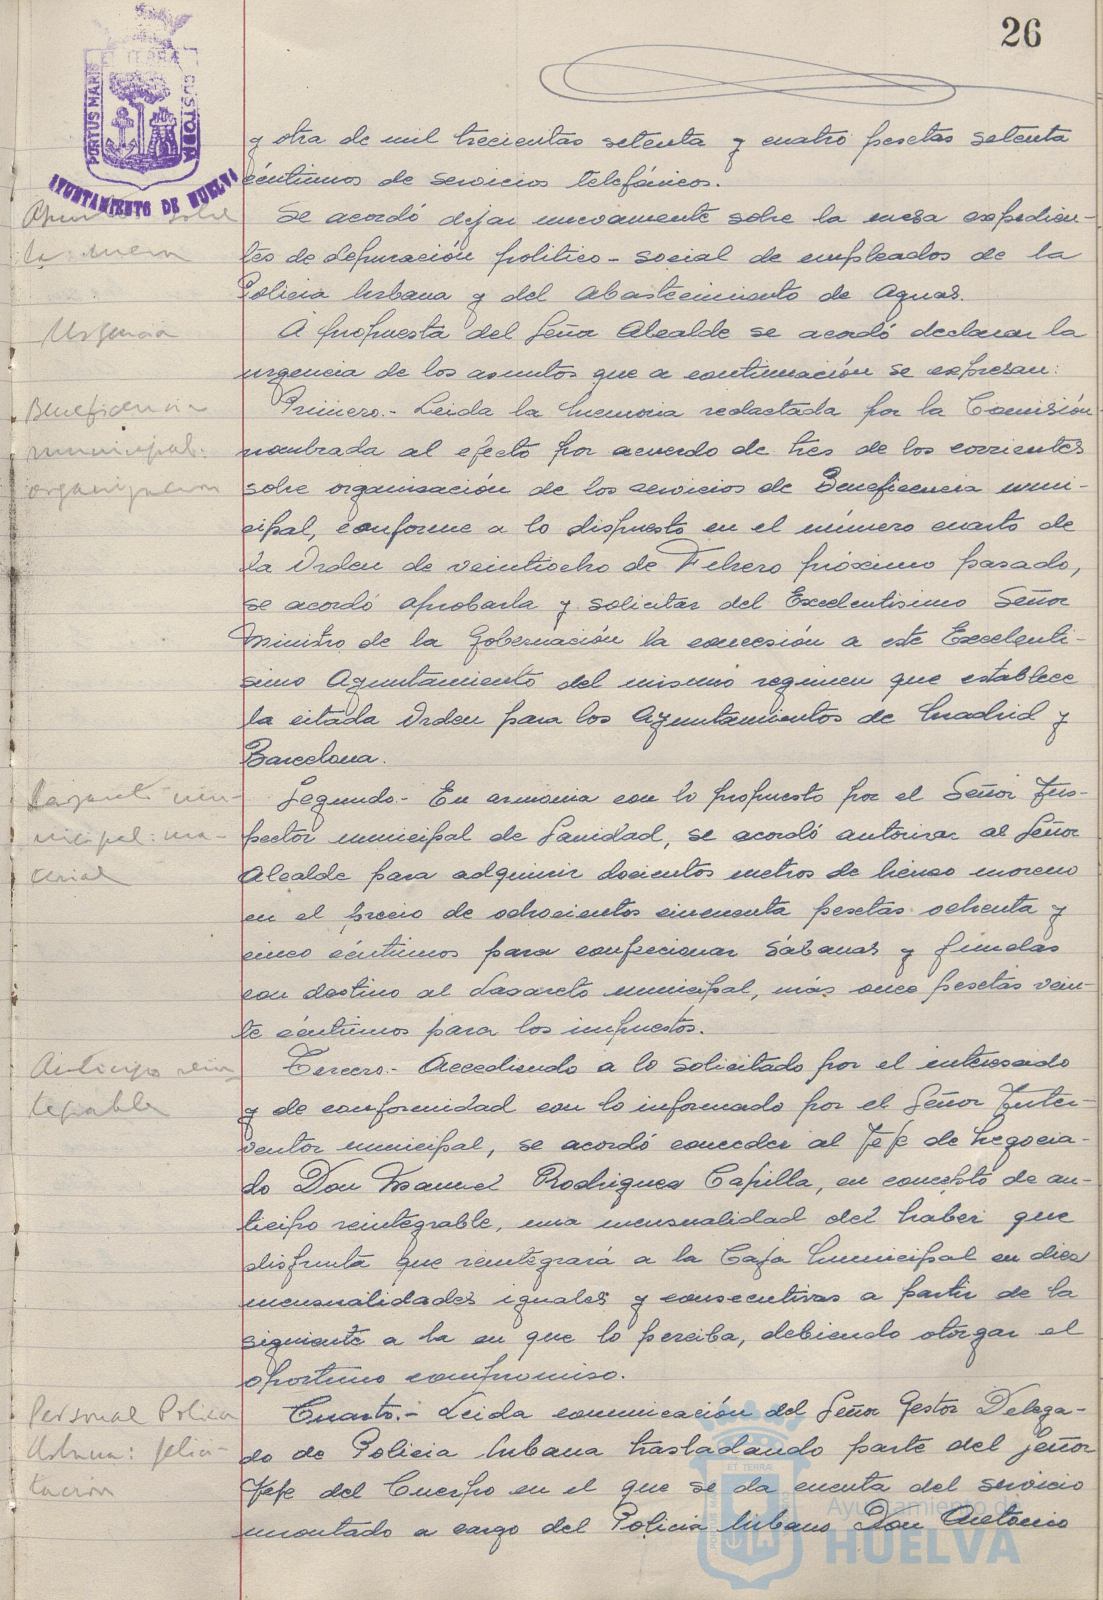 26
ET TERRÆ
PORTUS MARIS
CUSTODIA
AYUNTAMIENTO DE HUELVA
y otra de mil trecientas setenta y cuatro pesetas setenta
céntimos de servicios telefónicos.
sobre
la mesa
Se acordó dejar nuevamente sobre la mesa expedien-
tes de depuración politico-social de empleados de la
Policia Urbana y del Abastecimiento de Aguas.
Urgencia
A propuesta del Señor Alcalde se acordó declarar la
urgencia de los asuntos que a continuación se expresan:
Beneficencia
municipal:
organizacion
Primero.- Leida la Memoria redactada por la Comisión
nombrada al efecto por acuerdo de tres de los corrientes
sobre organisación de los servicios de Beneficencia muni-
cipal, conforme a lo dispuesto en el número cuarto de
la Orden de veintiocho de Febrero próximo pasado,
se acordó aprobarla y solicitar del Excelentisimo Señor
Ministro de la Gobernación la concesión a este Excelenti-
simo Ayuntamiento del mismo regimen que establece
la citada Orden para los Ayuntamientos de Madrid y
Barcelona.
mu-
nicipal: ma-
terial
Segundo.- En armonia con lo propuesto por el Señor Ins-
pector municipal de Sanidad, se acordó autorizar al Señor
Alcalde para adquirir docientos metros de lienzo moreno
en el precio de ochocientos cincuenta pesetas ochenta y
cinco céntimos para confecionar sábanas y fundas
con destino al Lasareto municipal, más once pesetas vein-
te céntimos para los impuestos.
Anticipo rein
tegrable
Tercero.- Accediendo a lo solicitado por el interesado
y de conformidad con lo informado por el Señor Inter-
ventor municipal, se acordó conceder al Jefe de Negocia-
do Don Manuel Rodrigues Capilla, en concepto de an-
ticipo reintegrable, una mensualidad del haber que
disfruta que reintegrará a la Caja Municipal en dies
mensualidades iguales y consecutivas a partir de la
siguiente a la en que lo perciba, debiendo otorgar el
oportuno compromiso.
Personal Policia
Urbana: felici-
tacion
Cuarto.- Leida comunicación del Señor Gestor Delega-
do de Policia Urbana trasladando parte del Señor
Jefe del Cuerpo en el que se da cuenta del servicio
montado a cargo del Policia Urbano Don Antonio
Ayuntamiento de
HUELVA